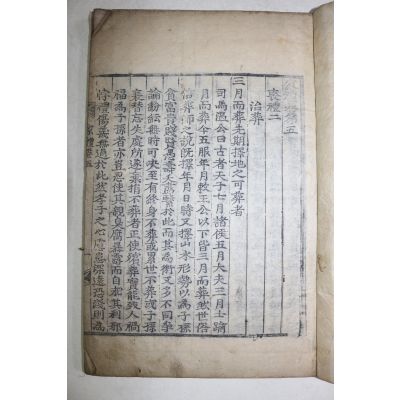 家禮卷五
喪禮二
治葬
三月而葬先期擇地之可葬者
司馬溫公曰古者天子七月諸侯五月大夫三月士踰
月而葬今五服年月敕王公以下皆三月而葬然世俗
信葬師之說既擇年月日時又擇山水形勢以為子孫
貧富貴賤賢愚壽夭盡繫於此而其為術又多不同爭
論紛紜無時可決至有終身不葬或累世不葬或子孫
衰替忘失處所遂棄捐不葬者正使殯葬實能致人禍
福為子孫者亦豈忍使其親臭腐暴露而自求其利耶
悖禮傷義無過於此然孝子之心慮患深遠恐淺則為
家禮卷五